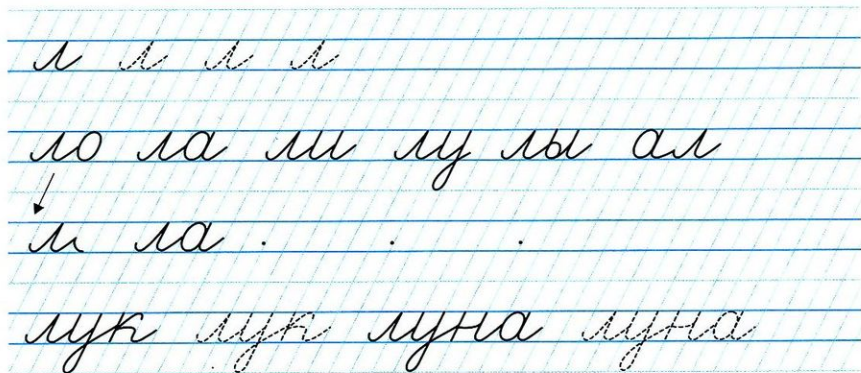 л л л л
ло ла ли лу лы ал
л ла . . .
лук лук луна луна